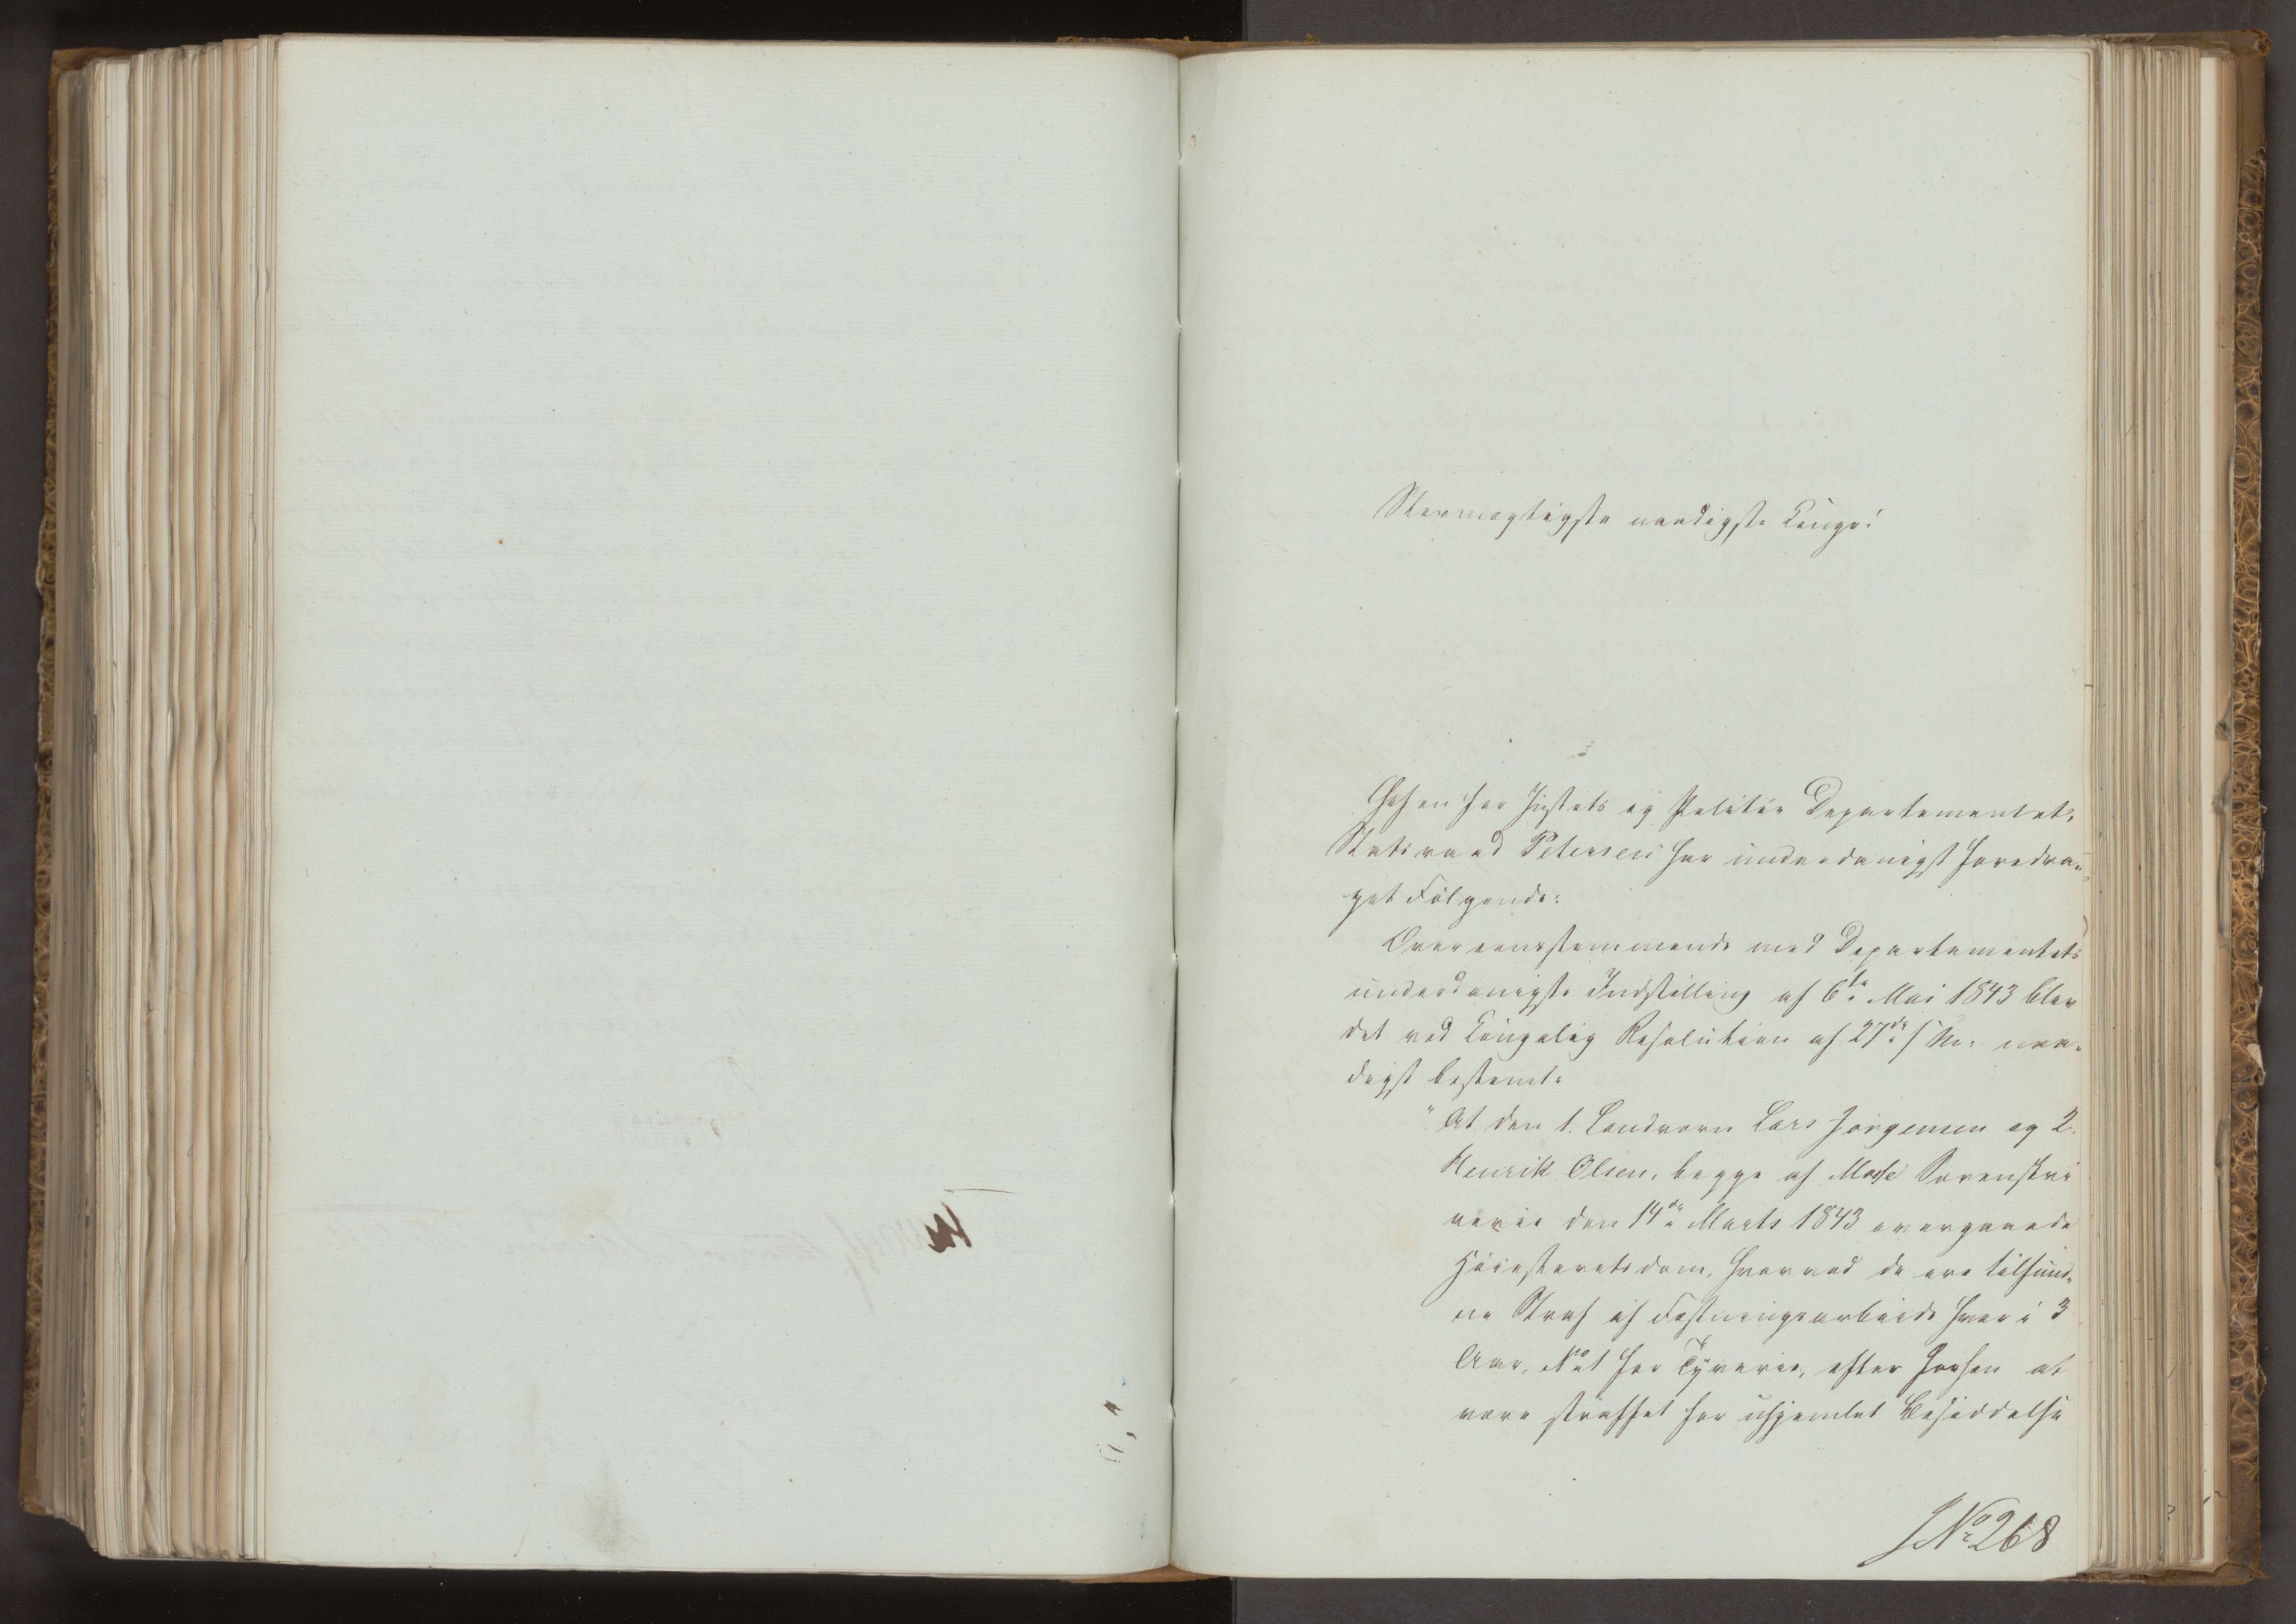 Stormægtigste naadigste Konge!
Chefen for Justits og Politie Departementet,
Statsraad Petersen har underdanigst foredra-
get Følgende:
Overeensstemmende med Departementets
underdanigste Indstilling af 6te Mai 1843 blev
det ved Kongelig Resolution af 27de s. M. naa-
digst bestemt:
"At den 1. Landværn Lars Jørgensen og 2.
Henrik Olsen, begge af Mosse Sorenskri
verie den 14de Marts 1843 overgaaede
Høiesteretsdom, hvorved de ere tilfund-
ne Straf af Fæstningsarbeide hver i 3
Aar, No 1 for Tyverie, efter forhen at
være straffet for uhjemlet Besiddelse
J No 268